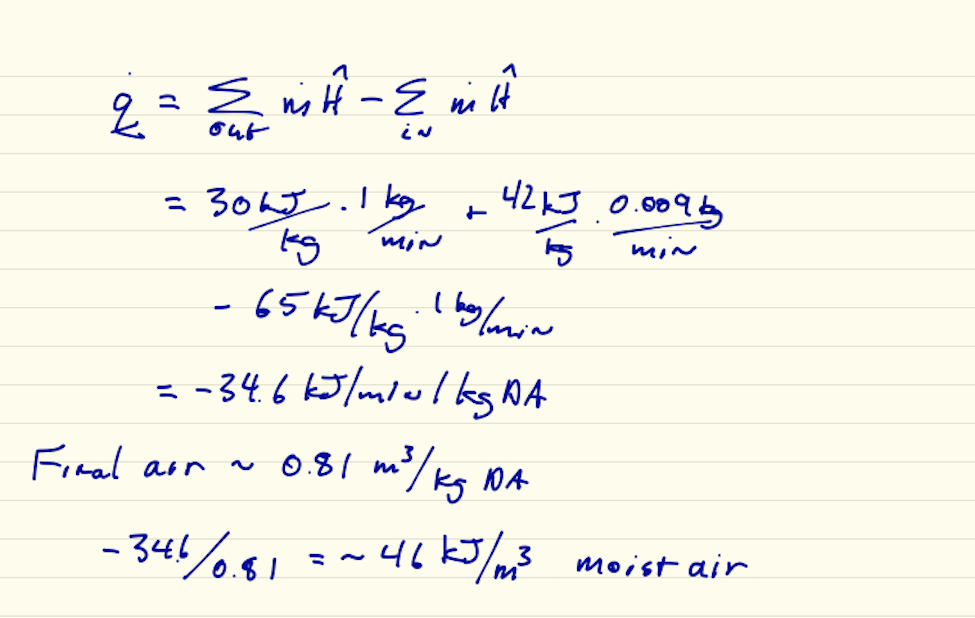 q̇ = Σ_out ṁĤ - Σ_in ṁĤ
= 30 kJ/kg · 1 kg/min + 42 kJ/kg · 0.009 kg/min
- 65 kJ/kg · 1 kg/min
= -34.6 kJ/min/kg DA
Final air ~ 0.81 m³/kg DA
-34.6/0.81 = ~46 kJ/m³ moist air